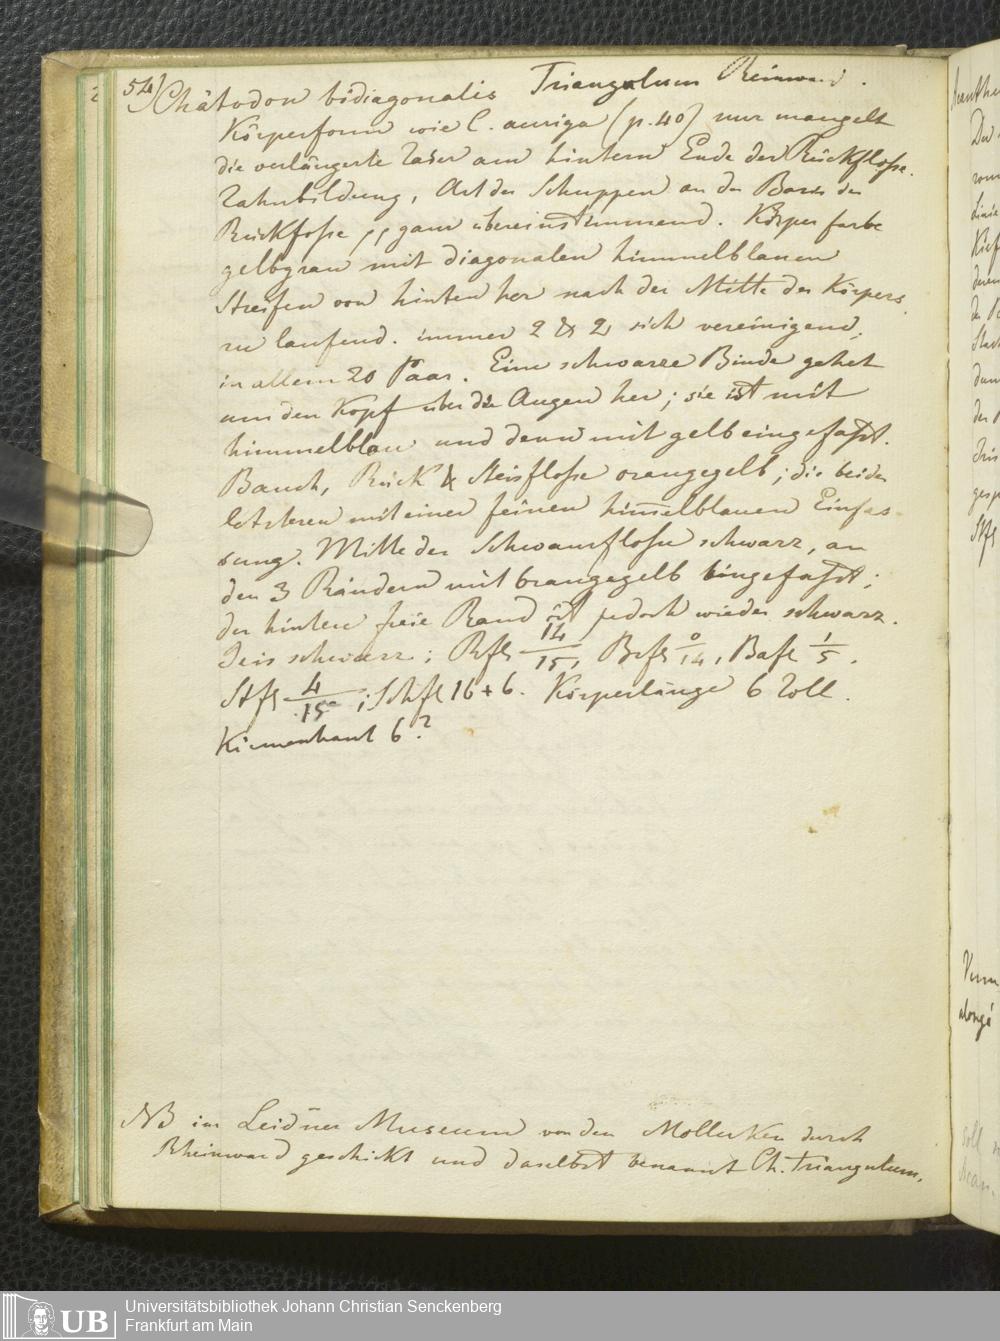 54) Châtodon bidiagonalis Triangulum Reinward.
Körperform wie C. auriga (p. 40) nur mangelt
die verlängerte Faser am hintern Ende der Rückflosse.
Zahnbildung, Art der Schuppen an der Basis der
Rückflosse, ganz übereinstimmend. Körperfarbe
gelbgrau mit diagonalen himmelblauen
Streifen von hinten her nach der Mitte des Körpers
zu laufend. immer 2 & 2 sich vereinigend,
in allem 20 Paar. Eine schwarze Binde gehet
um den Kopf über die Augen her; sie ist mit
himmelblau und dann mit gelb eingefasst.
Bauch, Rück & Steisflosse orangegelb; die beiden
letzteren mit einer feinen himelblauen Einfas-
sung. Mitte der Schwanzflosse schwarz, an
den 3 Rändern mit orangegelb eingefasst;
der hintere freie Rand ist jedoch wieder schwarz.
Iris schwarz; Rfl 14/15, Brfl 0/14, Bafl 1/5.
Stfl 4/15; Schfl 16+6. Körperlänge 6 Zoll.
Kiemenhaut 6?
NB im Leidner Museum von den Mollucken durch
Rheinward geschickt und daselbst benannt Ch. triangulum.
Verm
alongé
soll
Universitätsbibliothek Johann Christian Senckenberg
UB Frankfurt am Main